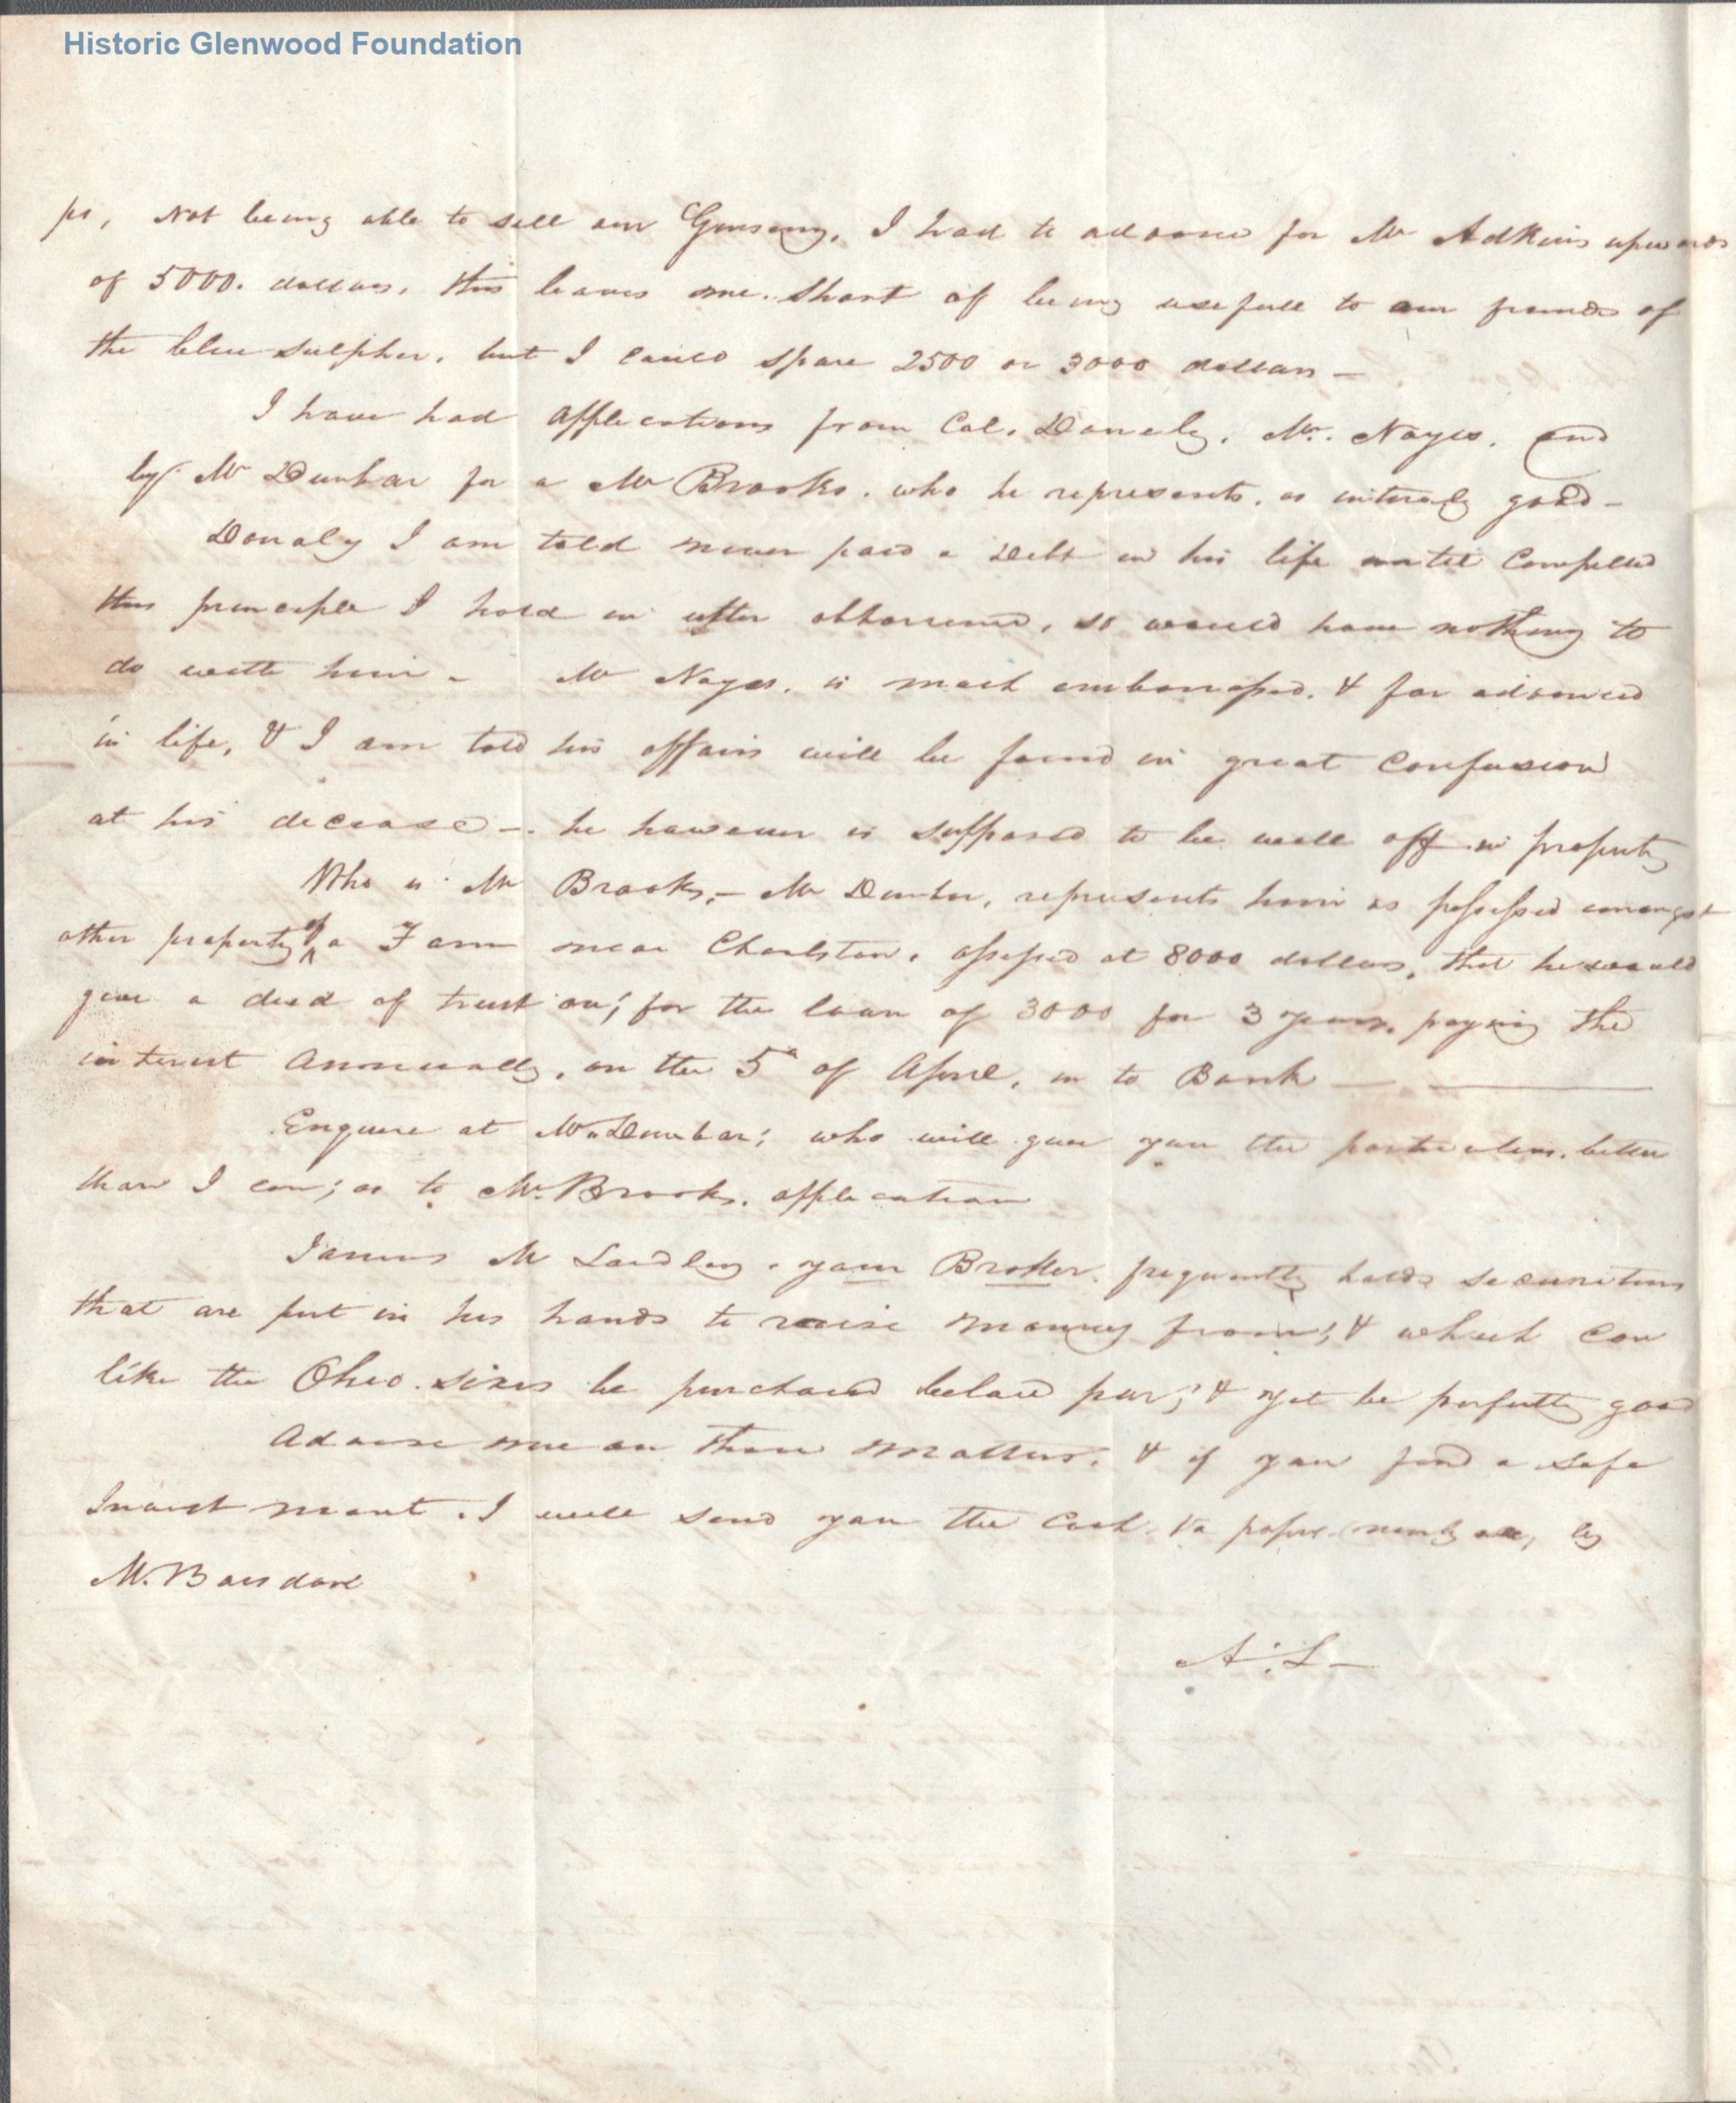 Historic Glenwood Foundation
ps, Not being able to sell our Ginseng, I had to advance for Mr Adkins upwards
of 5000. dollars, this leaves me. Short of being usefull to our friends of
the blue sulpher. but I could spare 2500 or 3000 dollars —
I have had applications from Col. Donely. Mr. Noyes. and
by Mr Dunbar for a Mr Brooks. who he represents. as intirely good —
Donaly I am told never paid a Debt in his life until Compelled
this principle I hold in utter abhorrence, so would have nothing to
do with him - Mr Noyes. is much embarrassed. & far advanced
in life, & I am told his affairs will be found in great Confusion
at his decease —. he however is supposed to be well off in property
Who is Mr Brooks, — Mr Dunbar, represents him as possessed amongst
other property of a Farm near Charlston. assessed at 8000 dollars, that he would
give a deed of trust on; for the loan of 3000 for 3 years, paying the
interest Annually, on the 5th of April, in to Bank —
Enquire at Mr. Dunbar; who will give you the particulars. better
than I can; as to Mr. Brooks. application
James M Laidley. your Broker. frequently holds securities
that are put in his hands to raise money from; & which can
like the Ohio. sixes be purchased below par; & yet be perfectly good
Advise me on these matters. & if you find a safe
Investment. I will send you the Cash. Va paper nearly all, by
M. Barsdale
A. L —